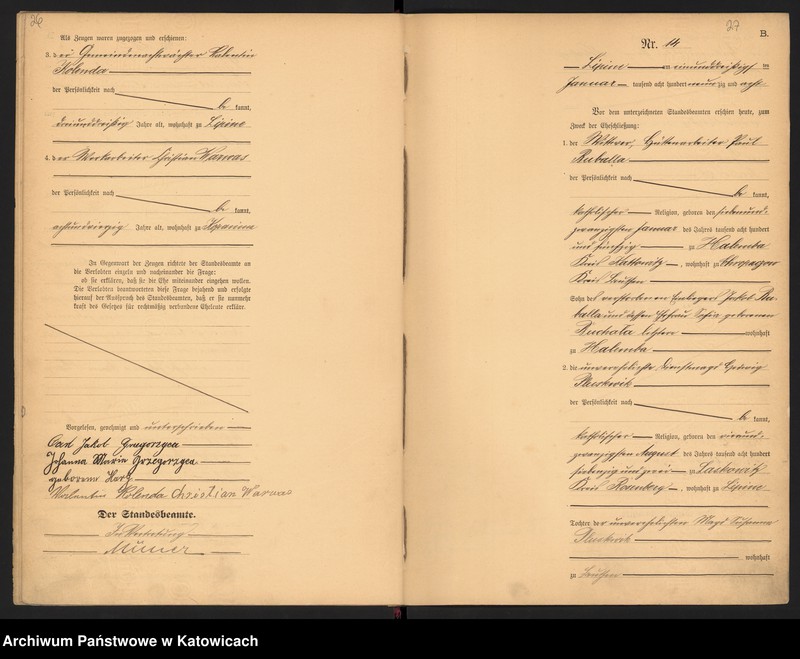 26
Als Zeugen waren zugezogen und erschienen:
3. der Gemeindewachtwächter Valentin
Kolenda
der Persönlichkeit nach
be kannt,
dreiunddreißig Jahre alt, wohnhaft zu Lipine
4. der Werkarbeiter Christian Warwas
der Persönlichkeit nach
be kannt,
achtundvierzig Jahre alt, wohnhaft zu
In Gegenwart der Zeugen richtete der Standesbeamte an
die Verlobten einzeln und nacheinander die Frage:
ob sie erklären, daß sie die Ehe miteinander eingehen wollen.
Die Verlobten beantworteten diese Frage bejahend und erfolgte
hierauf der Ausspruch des Standesbeamten, daß er sie nunmehr
kraft des Gesetzes für rechtmäßig verbundene Eheleute erkläre.
Vorgelesen, genehmigt und unterschrieben
Carl Jakob Grzegorzyca
Johanna Maria Grzegorzyca
geborene
Valentin Kolenda Christian Warwas
Der Standesbeamte.
In Vertretung
27
B.
Nr. 14
Lipine am einunddreißigst ten
Januar tausend acht hundert neun zig und acht
Vor dem unterzeichneten Standesbeamten erschien heute, zum
Zweck der Eheschließung:
1. der Wittwer, Hüttenarbeiter Paul
Kuballa
der Persönlichkeit nach
be kannt,
katholischer Religion, geboren den siebenund-
zwanzigsten Januar des Jahres tausend acht hundert
und fünfzig zu Halemba
Kreis Kattowitz, wohnhaft zu Chropaczow
Kreis Beuthen
Sohn des verstorbenen Jakob Ku-
balla und dessen Ehefrau Sofia geborenen
Ruchala letztere wohnhaft
zu Halemba
2. die unverehelichte Dienstmagd Hedwig
der Persönlichkeit nach
be kannt,
katholischer Religion, geboren den vierund-
zwanzigsten August des Jahres tausend acht hundert
siebenzig und zwei zu Laskowitz
Kreis Rosenberg, wohnhaft zu Lipine
Tochter der unverehelichten Magd Susanna
wohnhaft
zu Beuthen
Archiwum Państwowe w Katowicach